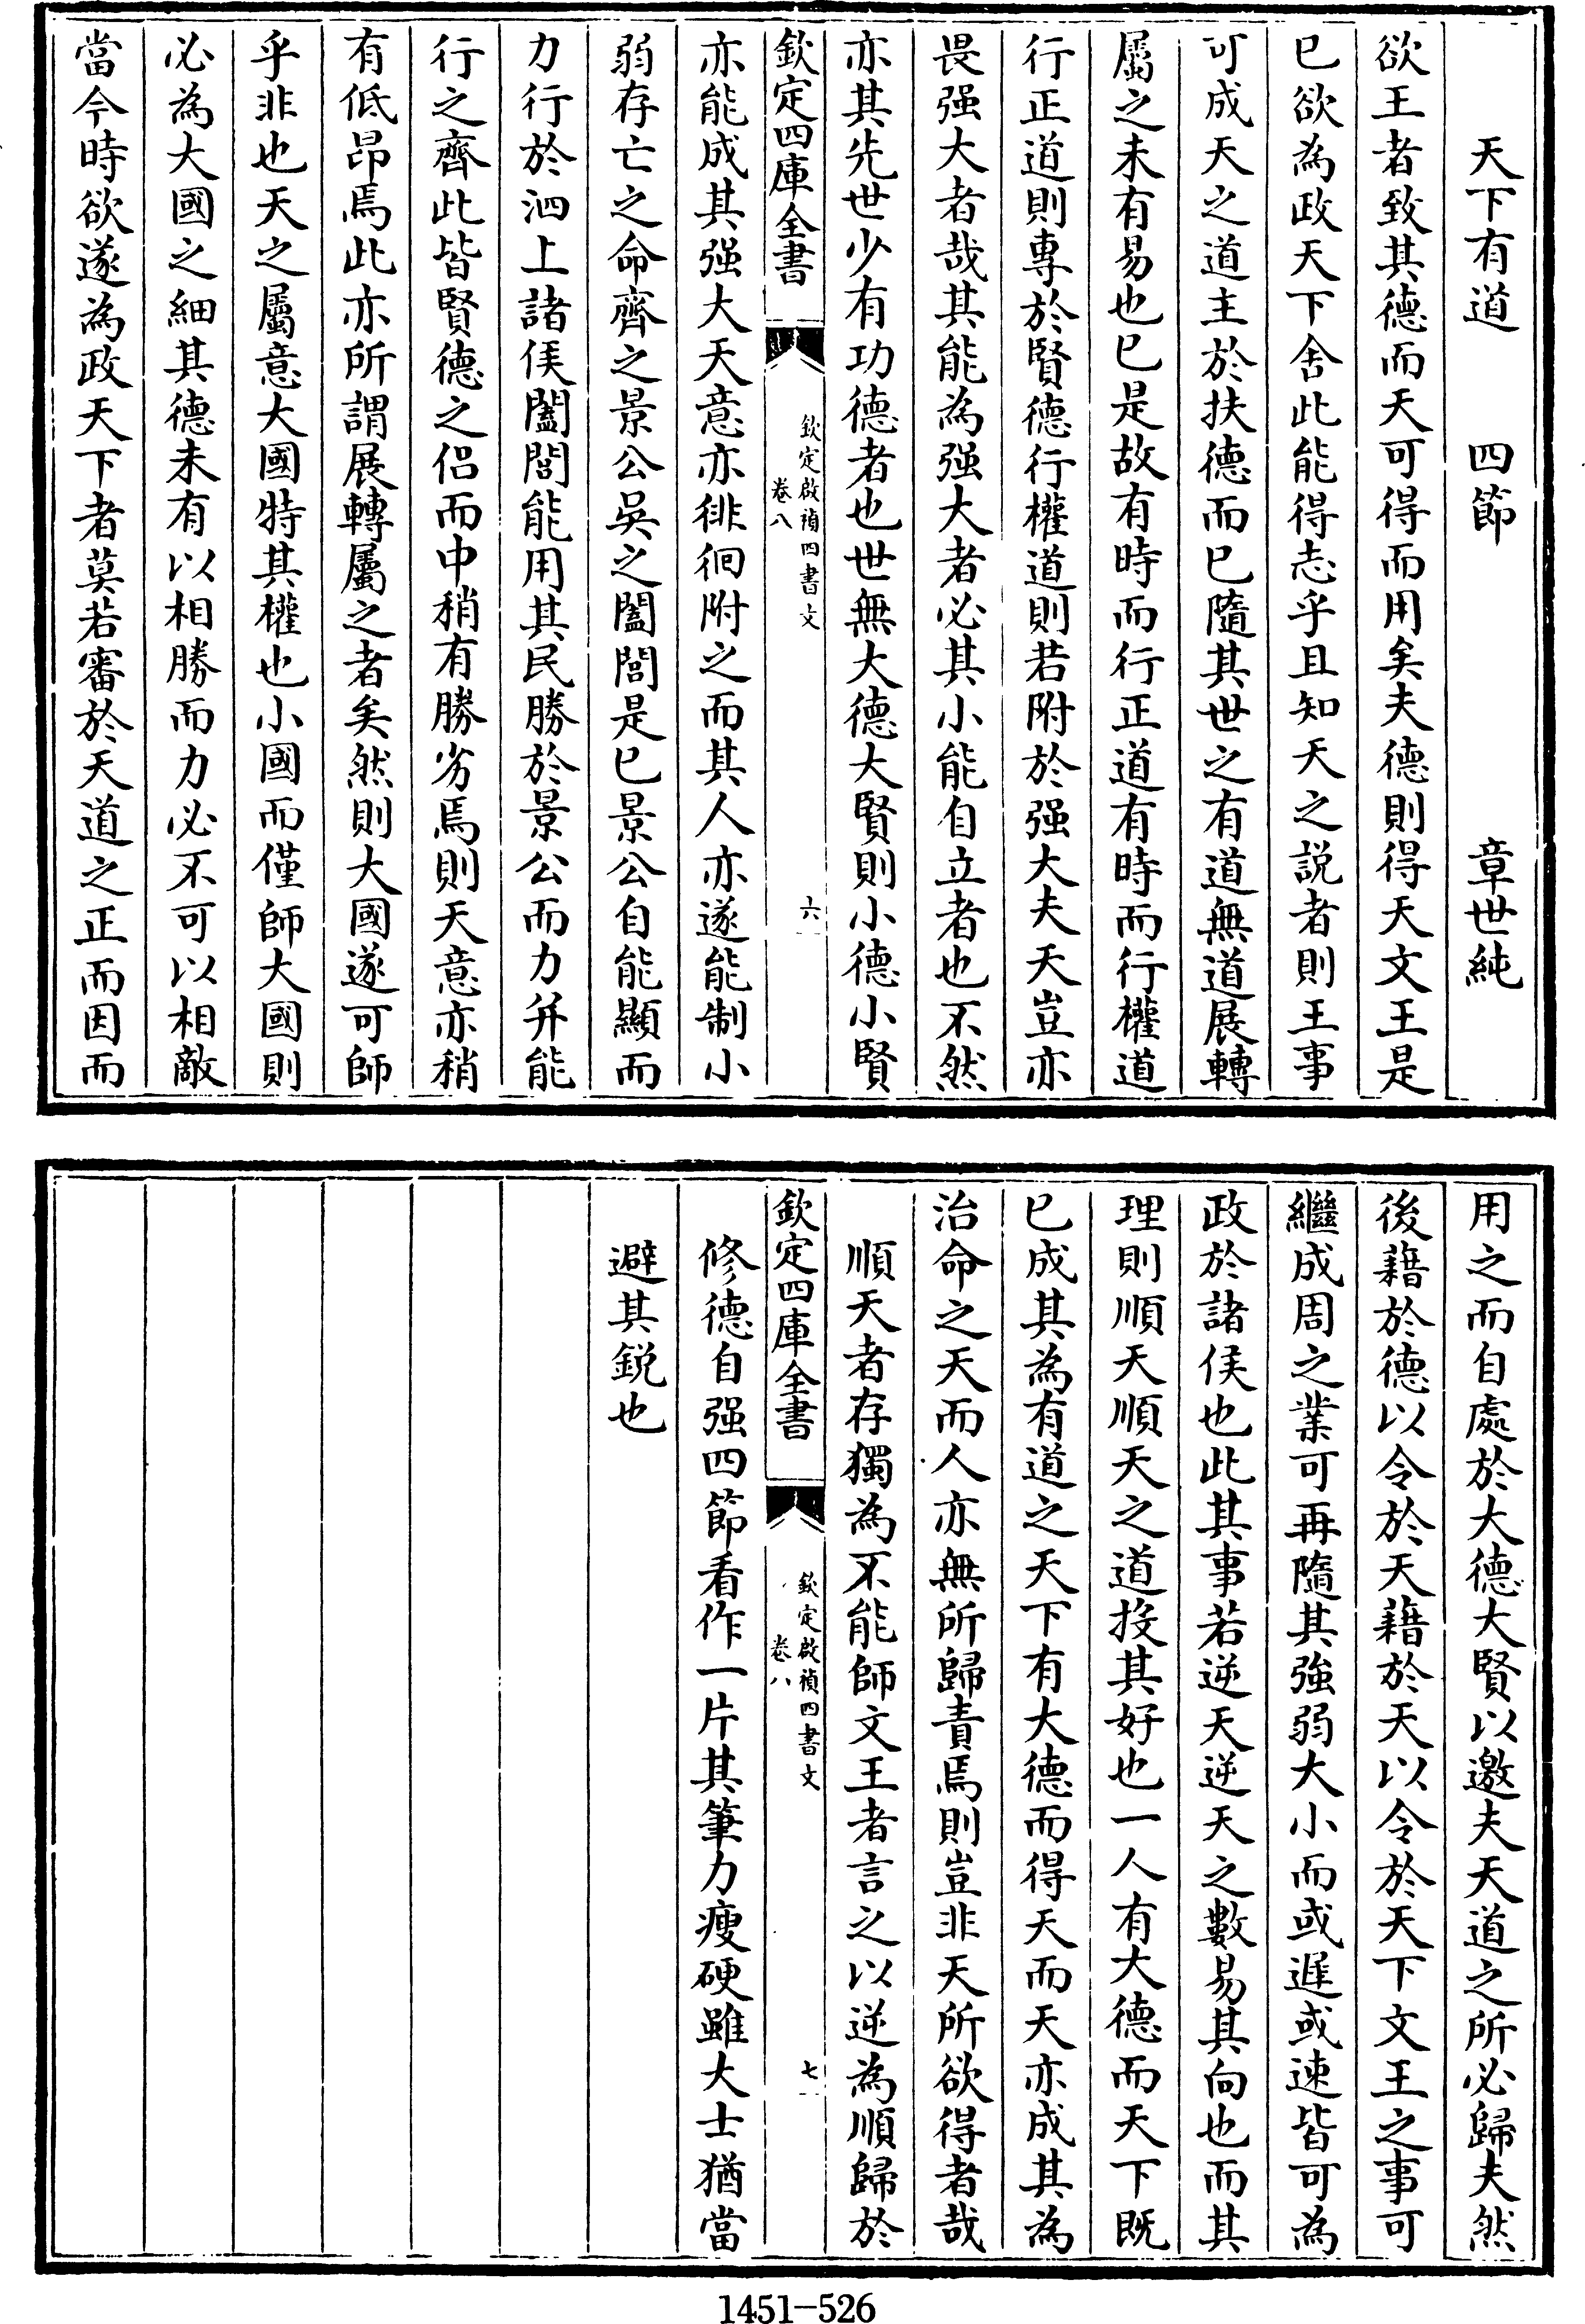 天下有道　四節　章世純
欲王者致其德而天可得而用矣夫德則得天文王是
已欲為政天下舍此能得志乎且知天之説者則王事
可成天之道主於扶德而已隨其世之有道無道展轉
屬之未有易也已是故有時而行正道有時而行權道
行正道則專於賢德行權道則若附於强大夫天豈亦
畏强大者哉其能為强大者必其小能自立者也不然
亦其先世少有功德者也世無大德大賢則小德小賢
欽定四庫全書　欽定啟禎四書文　卷八　六
亦能成其强大天意亦徘徊附之而其人亦遂能制小
弱存亡之命齊之景公吳之闔閭是已景公自能顯而
力行於泗上諸侯闔閭能用其民勝於景公而力并能
行之齊此皆賢德之侣而中稍有勝劣焉則天意亦稍
有低昂焉此亦所謂展轉屬之者矣然則大國遂可師
乎非也天之屬意大國特其權也小國而僅師大國則
必為大國之細其德未有以相勝而力必不可以相敵
當今時欲遂為政天下者莫若審於天道之正而因而
用之而自處於大德大賢以邀夫天道之所必歸夫然
後藉於德以令於天藉於天以令於天下文王之事可
繼成周之業可再隨其強弱大小而或遲或速皆可為
政於諸侯也此其事若逆天逆天之數易其向也而其
理則順天順天之道投其好也一人有大德而天下既
已成其為有道之天下有大德而得天而天亦成其為
治命之天而人亦無所歸責焉則豈非天所欲得者哉
順天者存獨為不能師文王者言之以逆為順歸於
欽定四庫全書　欽定啟禎四書文　卷八　七
修德自强四節看作一片其筆力瘦硬雖大士猶當
避其鋭也
1451-526